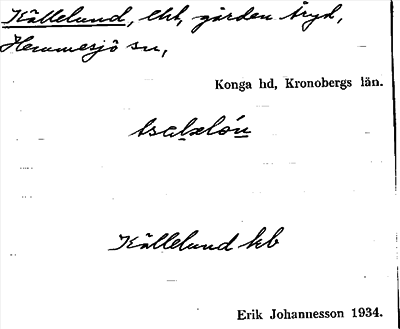 Källelund, lht, gården Åryd,
Hemmesjö sn,
Konga hd, Kronobergs län.
Källelund hb
Erik Johannesson 1934.